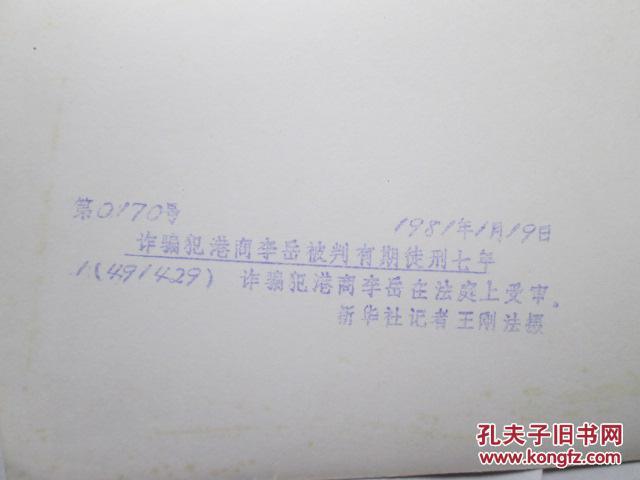 第0170号
1981年1月19日
诈骗犯港商李岳被判有期徒刑七年
1(491429) 诈骗犯港商李岳在法庭上受审。
新华社记者王刚法摄
孔夫子旧书网
www.kongfz.com